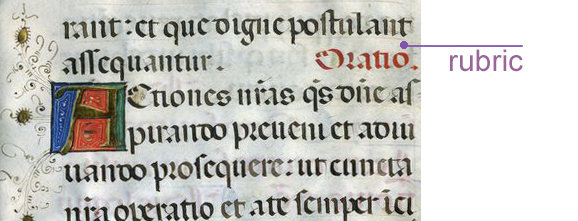 rant : et que digne postulant
assequantur. Oratio.
rubric
ACtiones nr̃as q̃s dñe as
pirando preueni et adiu
uando prosequere : ut cuncta
nr̃a operatio et a te semper īci